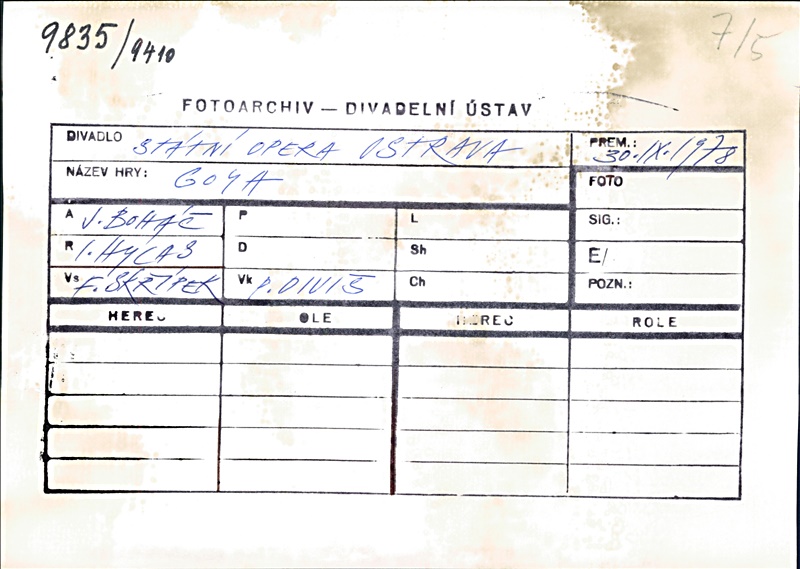 9835/9410
7/5
FOTOARCHIV — DIVADELNÍ ÚSTAV
DIVADLO STÁTNÍ OPERA OSTRAVA
PREM.: 30.IX.1978
NÁZEV HRY: GOYA
FOTO
A J. BOHÁČ P L SIG.:
R I. HYLAS D Sh E/
Vs F. ŠKŘÍPEK Vk P. DIVIŠ Ch POZN.:
HEREC OLE HEREC ROLE